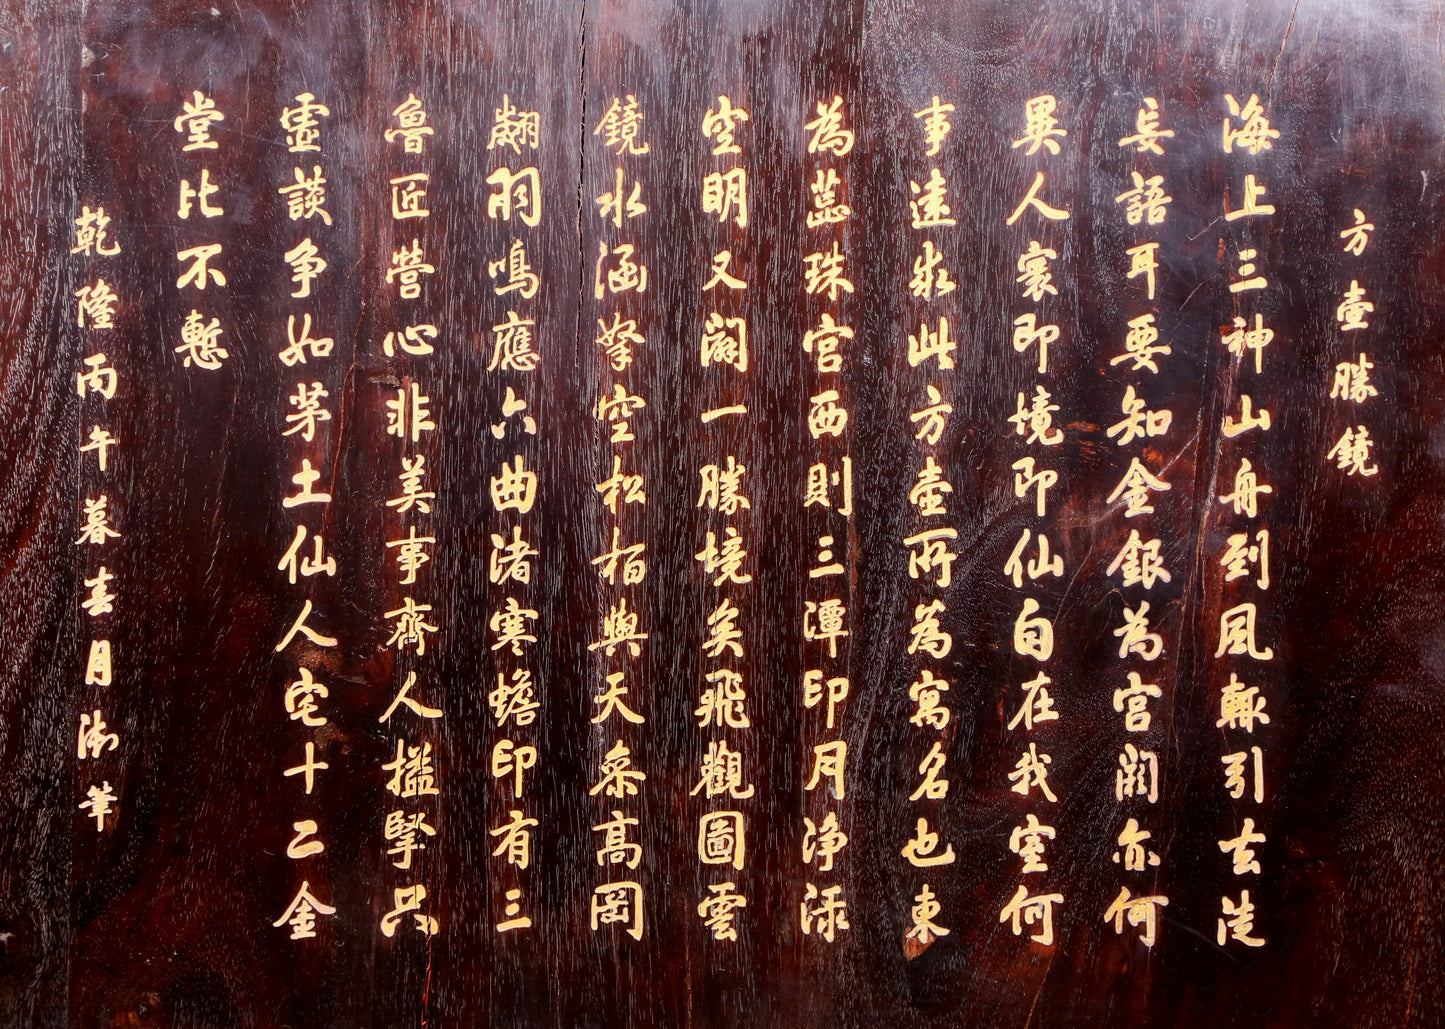 方壺勝鏡
海上三神山舟到風輒引去徒
妄語耳要知金銀為宮闕亦何
異人寰即境即仙自在我室何
事遠求此方壺所為寓名也東
為蕊珠宮西則三潭印月净淥
空明又闢一勝境矣飛觀圖雲
鏡水涵拏空松栢與天參高岡
翽羽鳴應六曲渚寒蟾印有三
魯匠營心非美事齊人搤掔只
虛談争如茅土仙人宅十二金
堂比不慙
乾隆丙午暮春月御筆